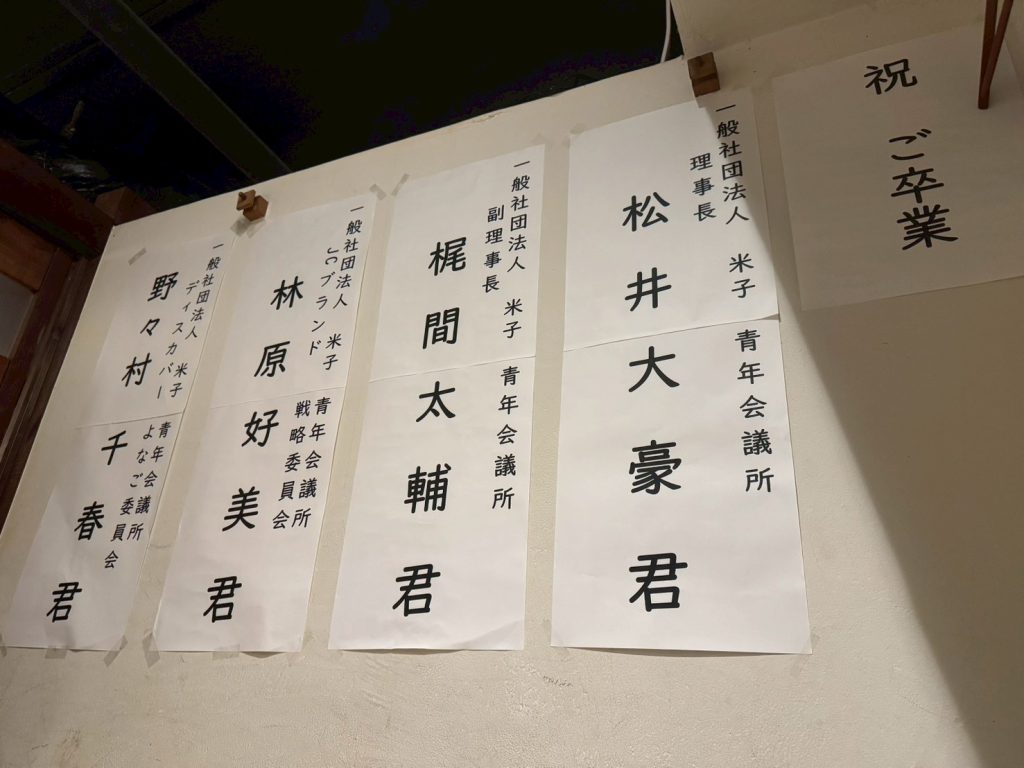 祝 ご卒業
一般社団法人 米子 青年会議所
理事長
松井大豪君
一般社団法人 米子 青年会議所
副理事長
梶間太輔君
一般社団法人 米子 青年会議所
JCブランド 戦略委員会
林原好美君
一般社団法人 米子 青年会議所
ディスカバー よなご委員会
野々村千春君